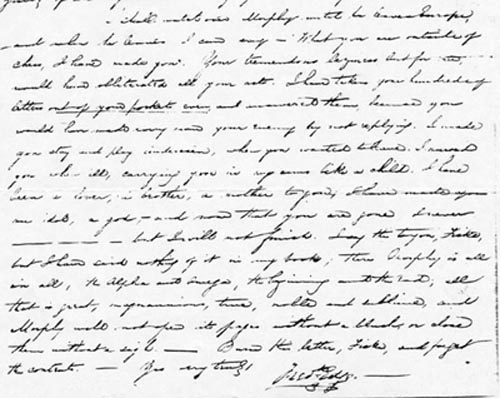 I shall write Morphy until he leaves Europe,
and when he leaves I can say – What you are outside of
chess, I have made you. Your tremendous laziness but for me,
would have obliterated all your acts. I have taken your hundreds of
letters out of your pockets even, and answered them, because you
would have made every man your enemy by not replying. I made
you stay and play Anderssen, when you wanted to leave. I nursed
you when ill, carrying you in my arms like a child. I have
been a lover, a brother, a mother to you; I have made you
an idol, a god, – and now that you are gone I never
— — — — – but I will not finish. I say this to you, Fiske,
but I have said nothing of it in my book; there Morphy is all
in all, the Alpha and Omega, the beginning and the end; all
that is great, magnanimous, true, noble and sublime, and
Morphy will not open its pages without a blush, or close
them without a sigh. — Burn this letter, Fiske, and forget
the contents. — Yrs very truly